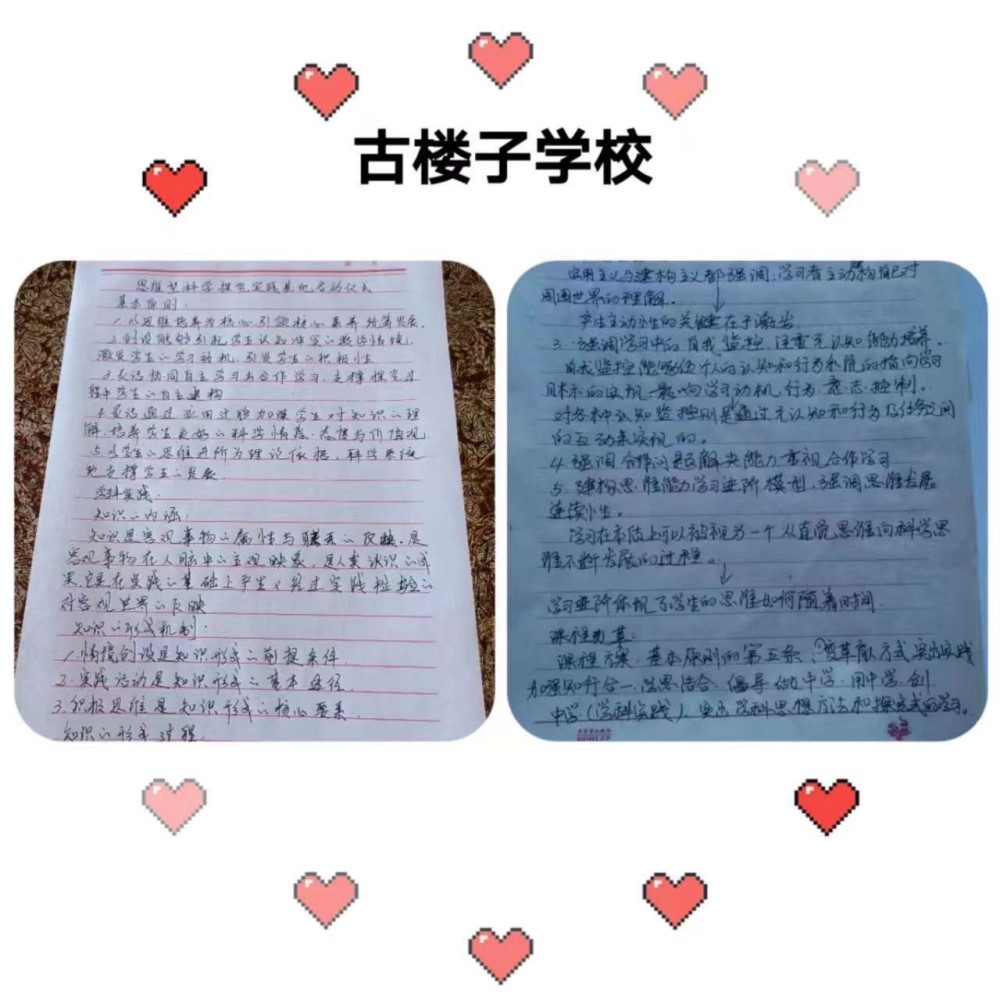 古楼子学校
思维型科学探究实践其他者的仪式
基本原则:
1.以思维培养为核心引领核心素养统筹发展。
2.创设能够引起学生认知冲突的教学情境,
激发学生的学习动机,引发学生的积极性
3.灵活协同自主学习与合作学习,支撑探究过
程中学生的自主建构
4.灵活通过应用过程加深学生对知识的理
解,培养学生良好的科学情感、态度与价值观
5.以学生的思维进阶为理设依据,科学系统
地支撑学生的发展
学科实践:
知识的内涵:
知识是客观事物的属性与联系的反映,是
客观事物在人脑中的主观映象,是人类认识的成
果,它是在实践的基础上产生又经过实践检验的
对客观世界的反映
知识的形成机制:
1.情境创设是知识形成的前提条件
2.实践活动是知识形成的基本途径
3.积极思维是知识形成的核心要素
知识的形成过程:
实用主义与建构主义都强调,学习者主动构建自己对
周围世界的理解。
产生主动性的关键在于激出
3.强调学习中的自我监控,注重元认知能力培养。
自我监控能够使个人的认知和行为和既的指向学习
目标的实现,影响学习动机、行为、意志控制。
对各种认知监控则是通过元认知和行为及任务之间
的互动来实现的。
4.强调合作问题解决能力,重视合作学习
5.建构思维能力学习进阶模型,强调思维发展
连续性。
学习在本质上可以被视为一个从直觉思维向科学思
维不断发展的过程。
学习进阶体现了学生的思维如何随着时间
课程改革:
课程方案,基本原则的第五条:①变革育人方式突出实践
加强知行合一、学思结合,倡导做中学、用中学、创
中学(学科实践),突出学科思想方法和探究式的学习。